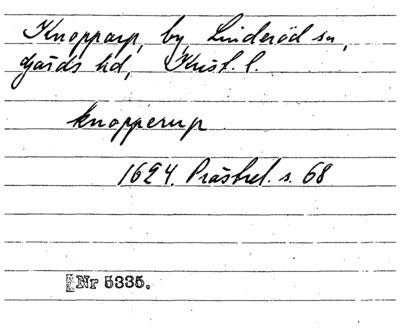 Knopparp, by, Linderöd sn,
Gärds hd, Krist. l.
knopperup
1624. Prästrel. s. 68
Nr 5335.